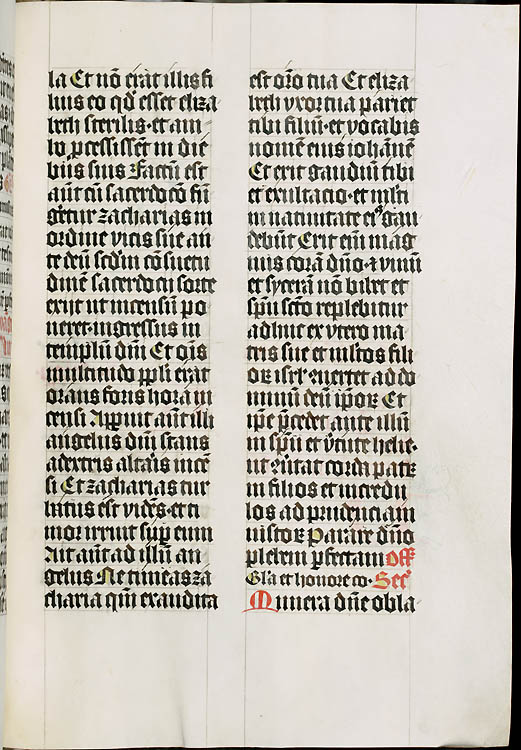 la Et nō erāt illis fi
lius eo qđ esset eliza
beth sterilis·et am
bo p̄cessissēt in die
bus suis Factū est
aūt cū sacerdocō fū
gēretur zacharias in
ordine vicis sue an
te deū scđm cōsuetu
dinē sacerdocii sorte
exijt ut incensū po
neret·ingressus in
templū dnī Et oīs
multitudo ppli erāt
orans foris hora in
censi Apparuit aūt illi
angelus dnī stans
adextris altaris incē
si Et zacharias tur
batus est vidēs·et ti
mor irruit sup̄ eum
Ait aūt ad illū an
gelus·Ne timeas za
charia qm̄ exaudita
est orō tua Et eliza
beth vxor tua pariet
tibi filiū·et vocabis
nomen eius iohānē
Et erit gaudiū tibi
et exultacio·et mlti
in natiuitate eiꝰ gau
debūt Erit em̄ mag
nus corā dño·⁊ vinū
et sycerā nō bibet et
spū scō replebitur
adhuc ex vtero ma
tris sue et mltos fili
oꝝ isrl̄ ꝯuertet ad do
minū deū ip̄oꝝ Et
ip̄e p̄cedet ante illū
in spū et v̄tute helie·
ut ꝯūtat corda patꝝ
in filios et incredu
los ad prudenciam
iustoꝝ Parare dño
plebem p̄fectam Off
Gla et honore co· Sec̄
Munera dñe obla